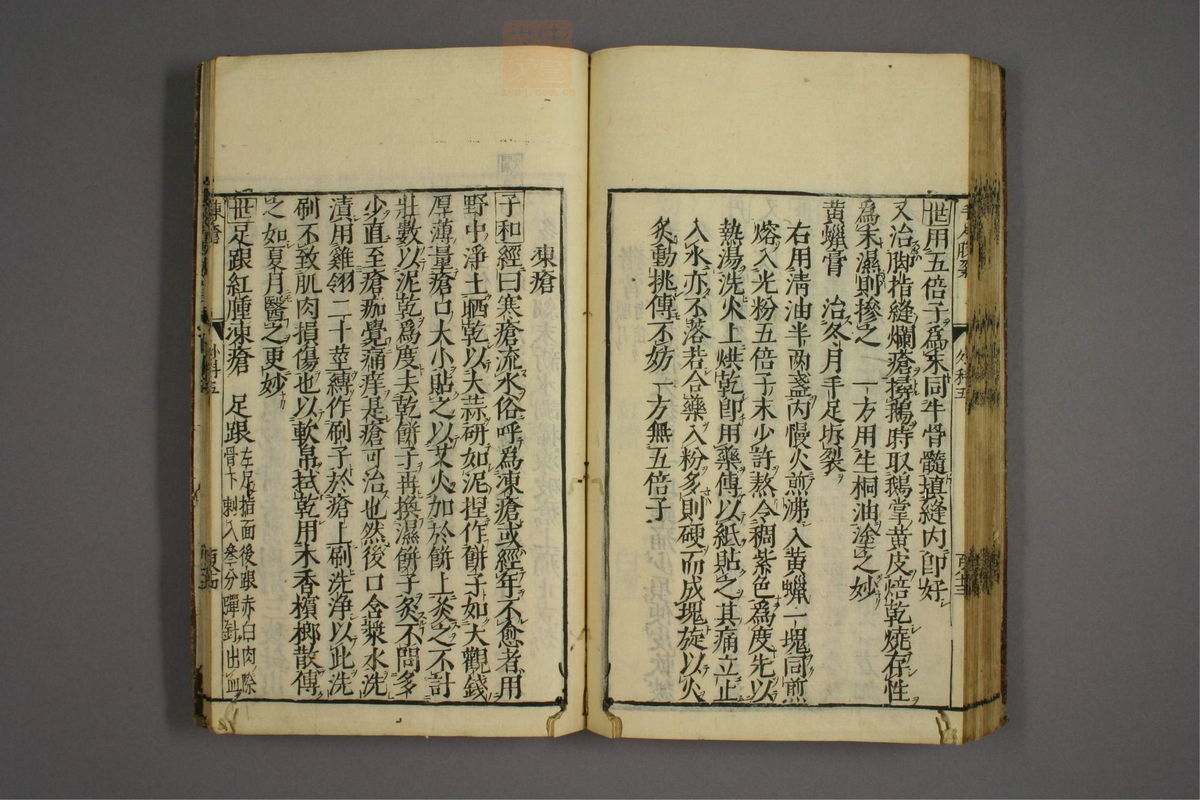 世用五倍子爲末同牛骨髓填縫内卽好
又治脚指縫爛瘡撏鵝時取鵝掌黄皮焙乾燒存性
爲末濕則摻之　一方用生桐油塗之妙
黄蝋膏　治冬月手足坼裂
右用清油半両盞内慢火煎沸入黄蝋一塊同煎
熔入光粉五倍子末少許熬令稠紫色爲度先以
熱湯洗火上烘乾卽用藥傅以紙貼之其痛立止
入水亦不落若合藥入粉多則硬而成塊旋以火
炙動挑傅不妨　一方無五倍子
凍瘡
子和經曰寒瘡流水俗呼爲凍瘡或經年不愈者用
野中淨土晒乾以大蒜研如泥捏作餅子如大觀錢
厚薄量瘡口大小貼之以艾火加於餅上灸之不計
壯數以泥乾爲度去乾餅子再換濕餅子灸不問多
少直至瘡痂覺痛痒是瘡可治也然後口含漿水洗
漬用雞翎二十莖縛作刷子於瘡上刷洗淨以此洗
刷不致肌肉損傷也以軟帛拭乾用木香檳榔散傅
之如夏月醫之更妙
世足跟紅腫凍瘡　足跟左足指面後跟赤白肉際
骨下刺入叄分彈針出血
凍瘡
外科五